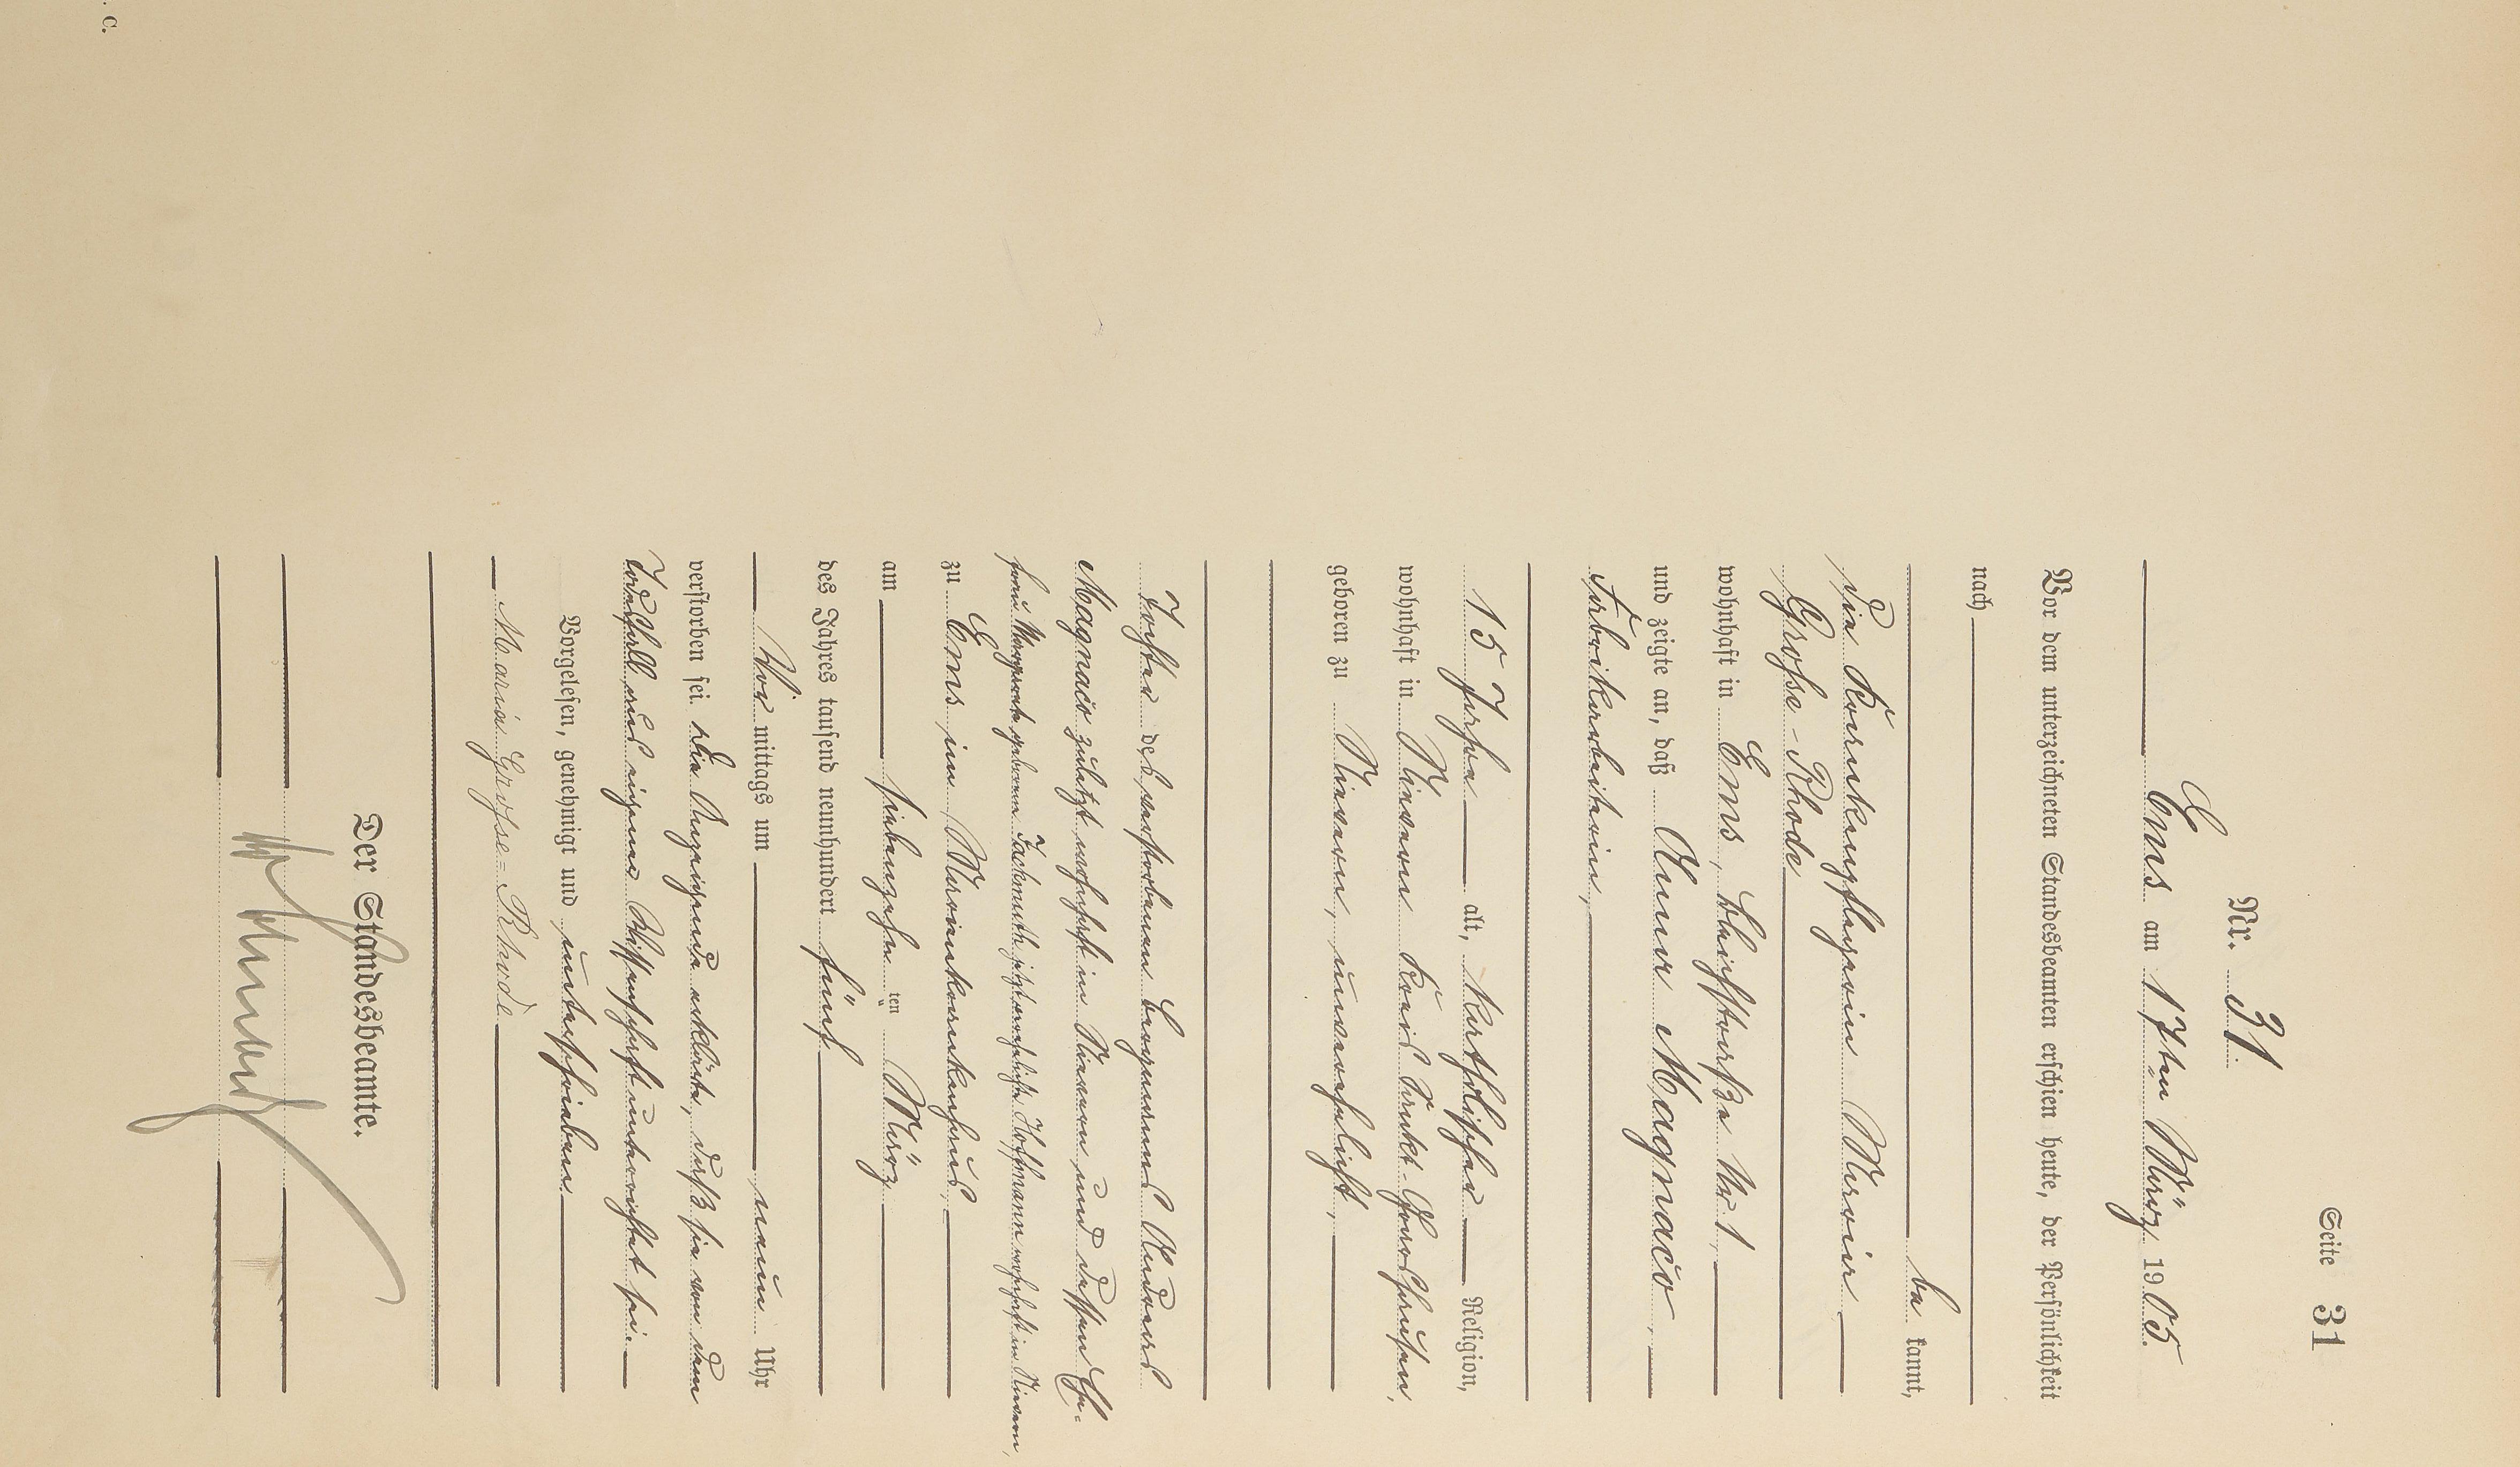 Seite 31
Nr. 31
Ems am 17ten März 1905.
Vor dem unterzeichneten Standesbeamten erschien heute, der Persönlichkeit
nach
be kannt,
die Krankenpflegerin Maria
Große-Rhode
wohnhaft in Ems, Bleichstraße Nr 1
und zeigte an, daß Anna Magnaćo,
Fabrikarbeiterin,
15 Jahre alt, katholischer Religion,
wohnhaft in Nievern Kreis Sankt-Goarshausen,
geboren zu Nievern, unverehelicht,
Tochter des verstorbenen Bergmanns Andreas
Magnaćo zuletzt wohnhaft in Nievern und dessen Ehe-
frau Margareta geborenen Fachmuth jetzt verehelichte Hoffmann wohnhaft in Nievern,
zu Ems, im Marienkrankenhaus,
am siebenzehn ten März
des Jahres tausend neunhundert fünf
Vor mittags um neun Uhr
verstorben sei. Die Anzeigende erklärte, daß sie von dem
Todesfall aus eigener Wissenschaft unterrichtet sei.
Vorgelesen, genehmigt und unterschrieben.
Maria Große-Rhode
Der Standesbeamte.
c.